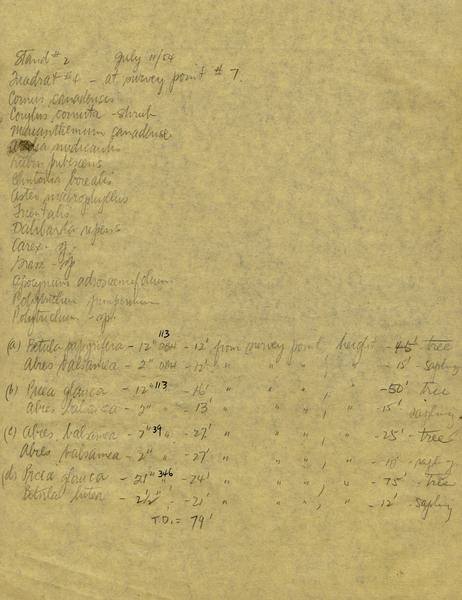 Stand # 2 July 11/54
Quadrat #4 - at survey point # 7.
Cornus canadensis
Corylus cornuta - shrub
Maianthemum canadense
nudicaulis
Rubus pubescens
Clintonia borealis
Aster macrophyllus
Trientalis
Dalibarda repens
Carex - sp.
Grass - sp
Apocynum adrosaemifolium
Polytrichum juniperinum
Polytrichum - sp.
113
(a) Betula papyrifera - 12" DBH - 12' from survey point, height - 45' tree
Abies balsamea - 2" DBH - 12' " " " , " - 15' - sapling
(b) Picea glauca - 12" 113 - 16' " " " , " - 50' tree
Abies balsamea - 2" - 13' " " " , " - 15' sapling
(c) Abies balsamea - 7" 39 " - 27' " " " , " - 25' - tree
Abies balsamea - 2" " - 27' " " " , " - sapling
(d) Picea glauca - 21" 346 - 24' " " " , " - 75' - tree
Betula lutea - 2½" " - 21' " " " , " - 12' - sapling
T.D. = 79'